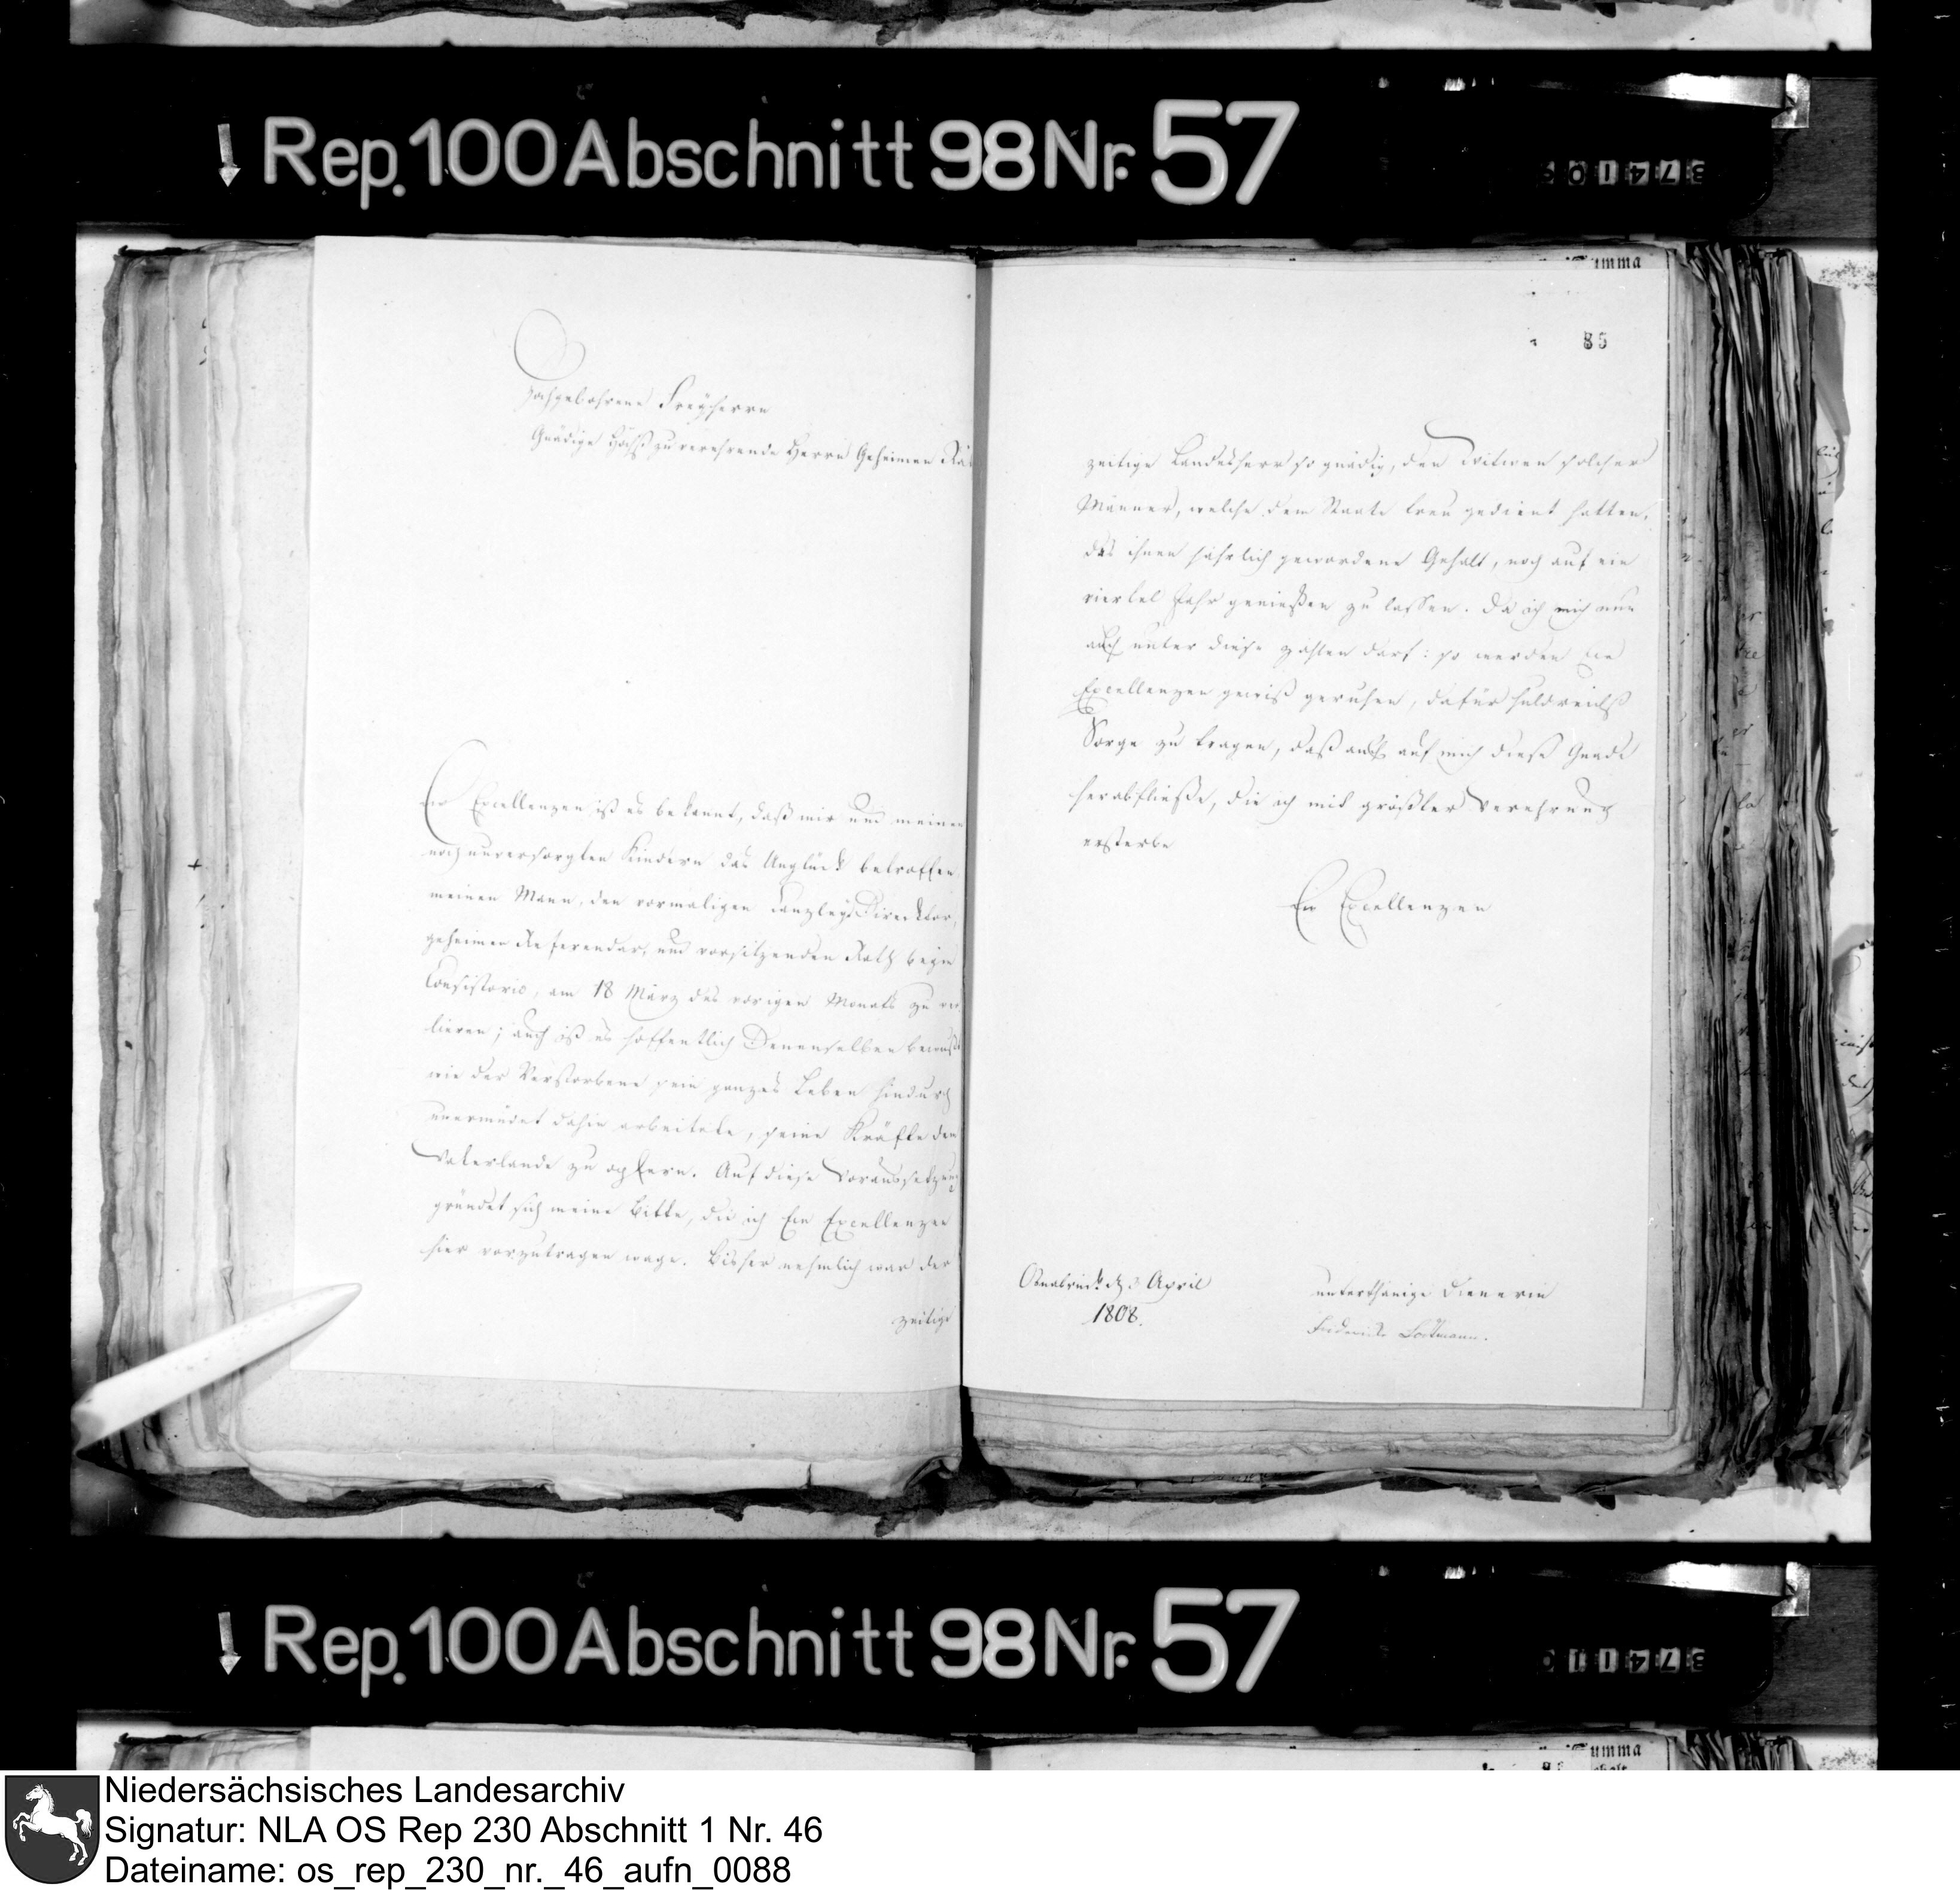 umma
Rep. 100 Abschnitt 98 Nr. 57
85
Hochgebohrene Freyherrn
Gnädige Höchstzuverehrende Herrn Geheimen Rä
Ew Excellenzen ist es bekannt, daß mir und meinen
noch unversorgten Kindern das Unglück betroffen
meinen Mann, den vormaligen CanzleyDirecktor,
geheimen Referendar, und vorsitzenden Rath beym
Consistorio, am 18 März des vorigen Monats zu ver
lieren; auch ist es hoffentlich Denenselben bewußt
wie der Verstorbene sein ganzes Leben hindurch
unermüdet dahin arbeitete, seine Kräfte dem
Vaterlande zu opfern. Auf diese Voraussetzung
gründet sich meine Bitte, die ich Ew Excellenzen
hier vorzutragen wage. Bisher nehmlich war der
zeitige
zeitige Landesherr so gnädig, den Witwen solcher
Männer, welche dem Staate treu gedient hatten,
das ihnen jährlich gewordene Gehalt, noch auf ein
viertel Jahr genießen zu lassen. Da ich mich nun
auch unter diese zählen darf: so werden Ew
Excellenzen gewiß geruhen, dafür huldreichst
Sorge zu tragen, daß auch auf mich diese Gnade
herabfließe, die ich mit größter Verehrung
ersterbe
Ew Excellenzen
Osnabrück d. 3 April
1808.
unterthänige Dienerin
Friderike Lodtmann.
Rep. 100 Abschnitt 98 Nr. 57
umma
Niedersächsisches Landesarchiv
Signatur: NLA OS Rep 230 Abschnitt 1 Nr. 46
Dateiname: os_rep_230_nr._46_aufn_0088